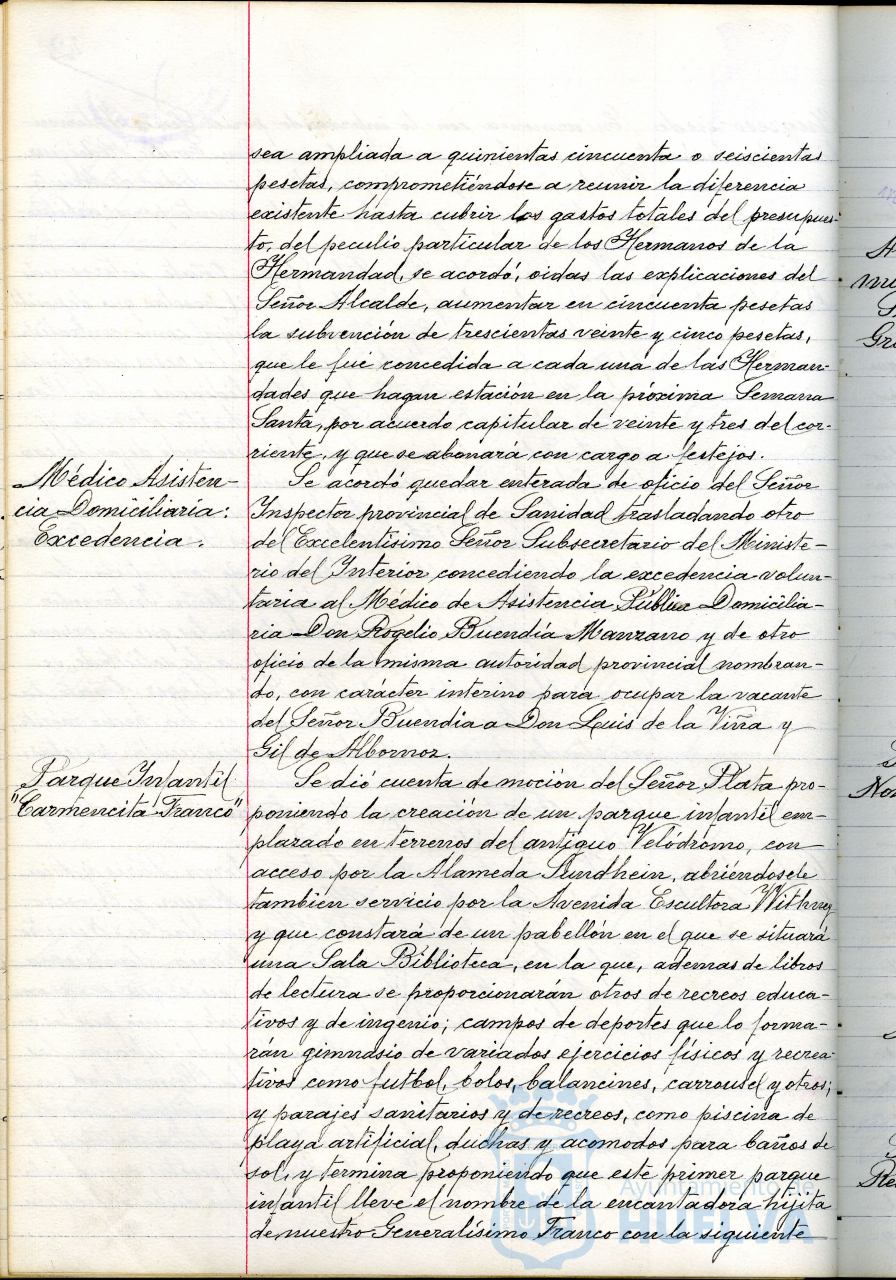 sea ampliada a quinientas cincuenta o seiscientas
pesetas, comprometiéndose a reunir la diferencia
existente hasta cubrir los gastos totales del presupues-
to, del peculio particular de los Hermanos de la
Hermandad, se acordó, oidas las explicaciones del
Señor Alcalde, aumentar en cincuenta pesetas
la subvención de trescientas veinte y cinco pesetas,
que le fué concedida a cada una de las Herman-
dades que hagan estación en la próxima Semana
Santa, por acuerdo capitular de veinte y tres del cor-
riente, y que se abonará con cargo a festejos.
Médico Asisten-
cia Domiciliaria:
Excedencia.
Se acordó quedar enterada de oficio del Señor
Inspector provincial de Sanidad trasladando otro
del Excelentisimo Señor Subsecretario del Ministe-
rio del Interior concediendo la excedencia volun-
taria al Médico de Asistencia Pública Domicilia-
ria Don Rogelio Buendía Manzano y de otro
oficio de la misma autoridad provincial nombran-
do, con carácter interino para ocupar la vacante
del Señor Buendia a Don Luis de la Viña y
Gil de Albornoz.
Parque Infantil
"Carmencita Franco"
Se dió cuenta de moción del Señor Plata pro-
poniendo la creación de un parque infantil em-
plazado en terrenos del antiguo Velódromo, con
acceso por la Alameda Sundhein, abriéndosele
tambien servicio por la Avenida Escultora Withney
y que constará de un pabellón en el que se situará
una Sala Biblioteca, en la que, ademas de libros
de lectura se proporcionarán otros de recreos educa-
tivos y de ingenio; campos de deportes que lo forma-
rán gimnasio de variados ejercicios físicos y recrea-
tivos como futbol, bolos, balancines, carrousel y otros;
y parajes sanitarios y de recreos, como piscina de
playa artificial, duchas y acomodos para baños de
sol, y termina proponiendo que este primer parque
infantil lleve el nombre de la encantadora hijita
de nuestro Generalísimo Franco con la siguiente
Ayuntamiento de
HUELVA